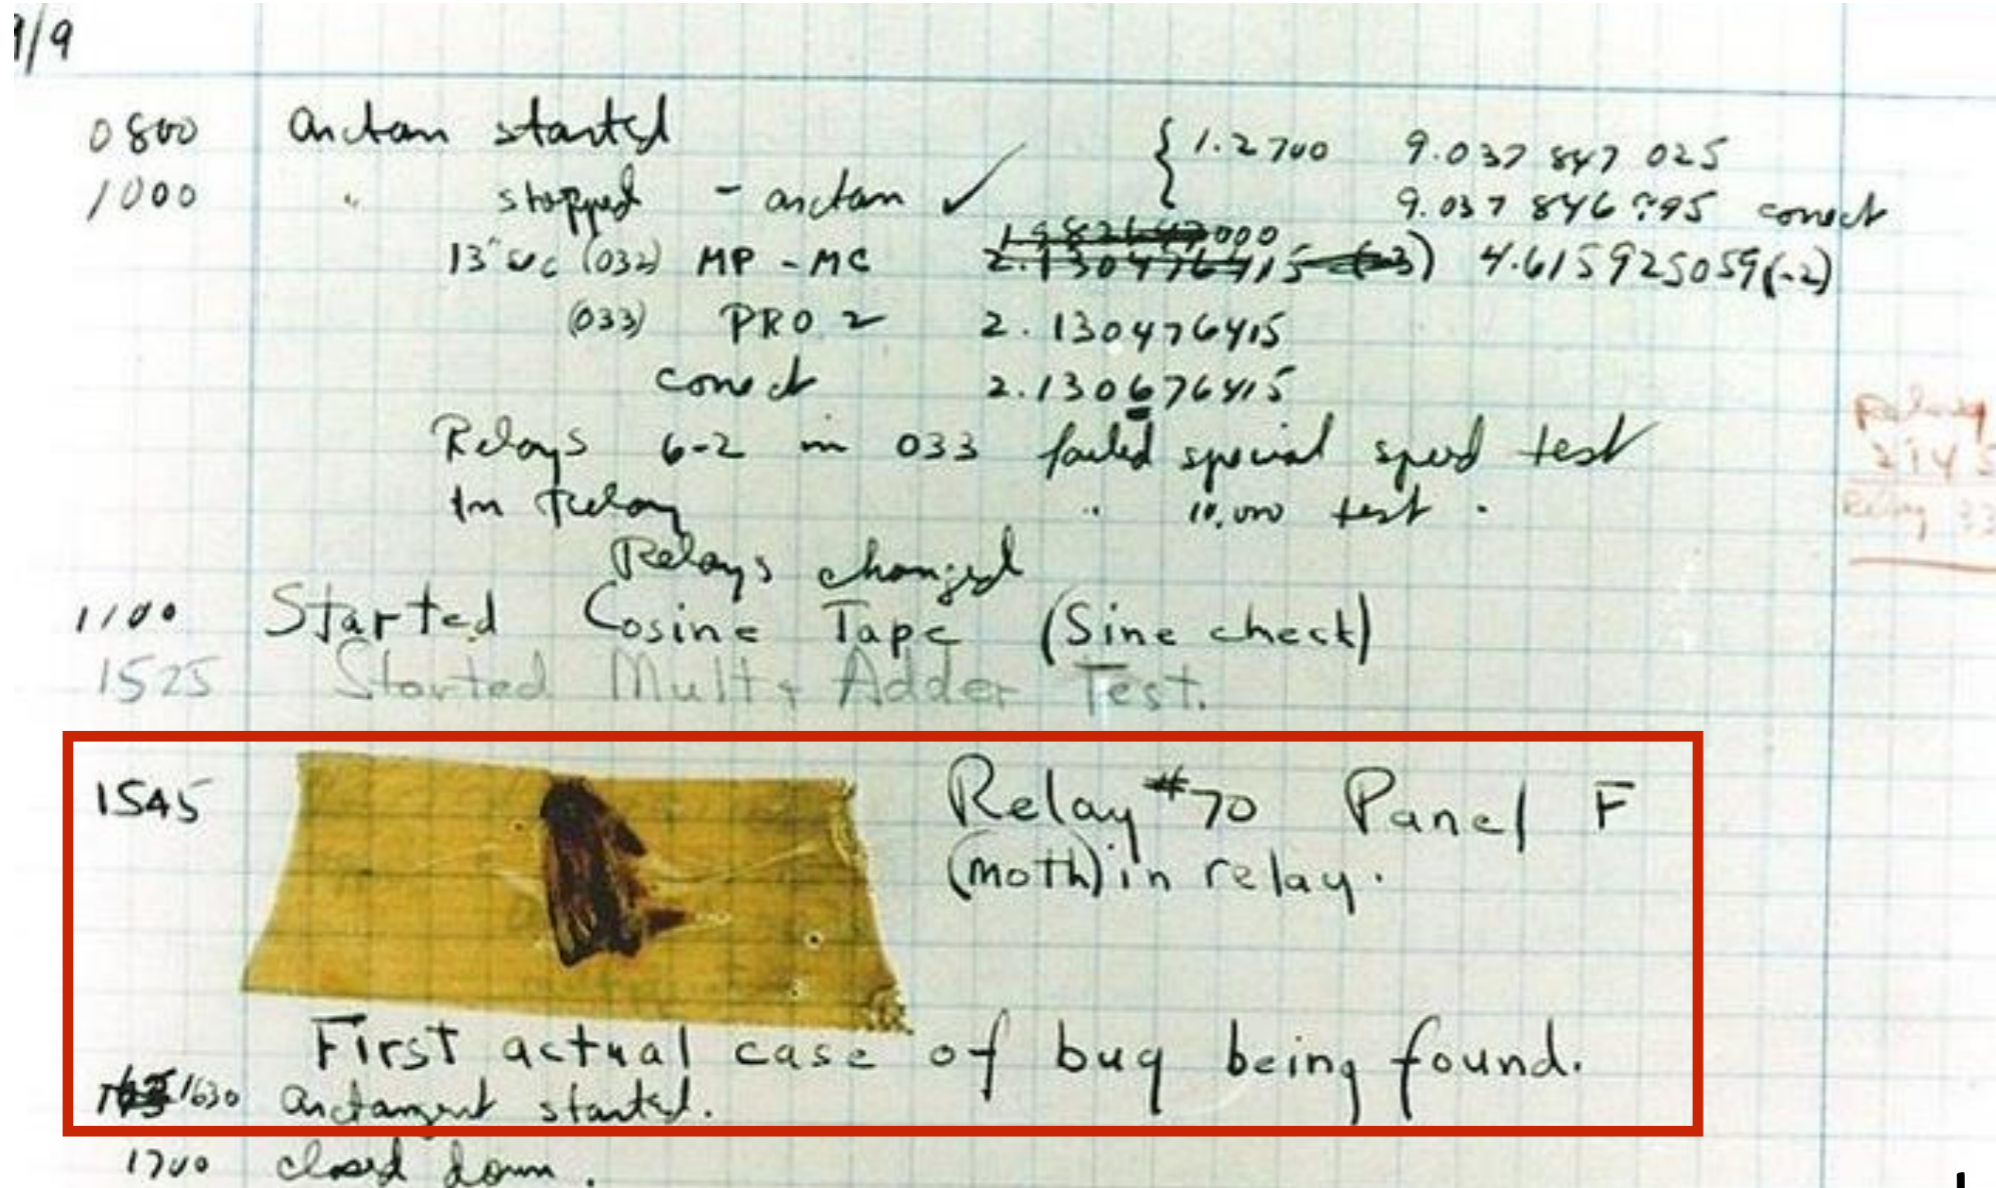 9/9
0800 arctan started { 1.2700 9.037 847 025
1000 " stopped - arctan ✓ 9.037 846 995 correct
13" uc (032) MP - MC 1.982647000 2.130476415 (-3) 4.615925059(-2)
(033) PRO 2 2.130476415
correct 2.130676415
Relays 6-2 in 033 failed special speed test
In relay " 10,000 test .
Relays changed
1100 Started Cosine Tape (Sine check)
1525 Started Mult + Adder Test.
1545 Relay #70 Panel F
(moth) in relay.
First actual case of bug being found.
1630 arctangent started.
1700 closed down.
Relay
2145
Relay 33